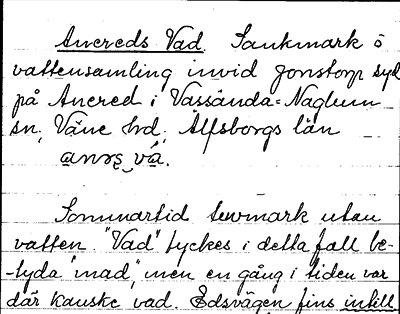 Anereds Vad. Sankmark o
vattensamling invid Jonstorp syd
på Anered i Vassända-Naglum
sn, Väne hd, Älfsborgs län
vá.
Sommartid torrmark utan
vatten. "Vad" tyckes i detta fall be-
-tyda "mad", men en gång i tiden var
där kanske vad. Edsvägen fins intill